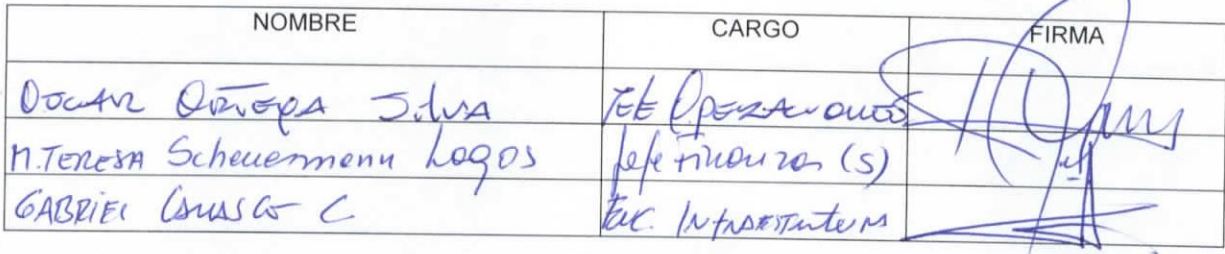 NOMBRE CARGO FIRMA
OSCAR Silva JEFE OPERACIONES
M.TERESA Scheuermann Lagos Jefe Finanzas (S)
GABRIEL CARRASCO C Enc. INFRAESTRUCTURA